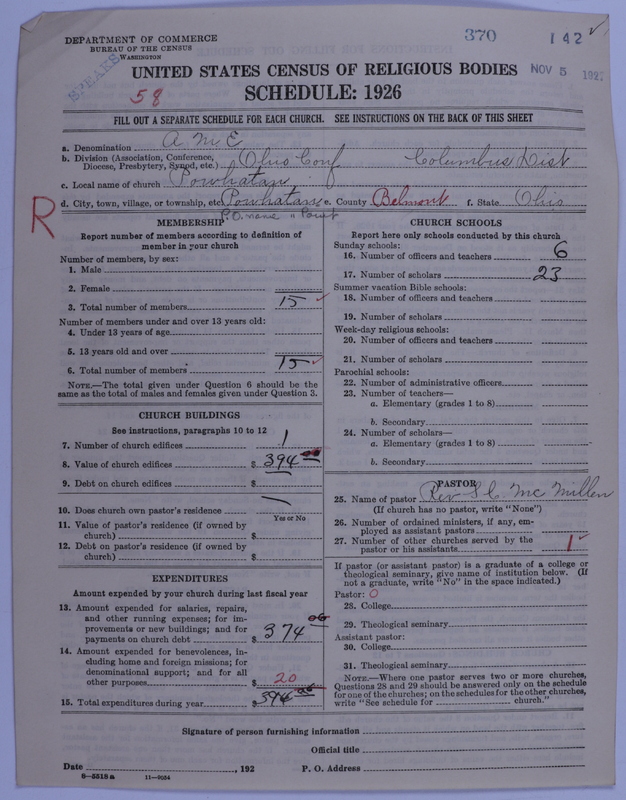 370
142 ✓
DEPARTMENT OF COMMERCE
BUREAU OF THE CENSUS
WASHINGTON
SPEAKS
UNITED STATES CENSUS OF RELIGIOUS BODIES
NOV 5 192
58
SCHEDULE: 1926
FILL OUT A SEPARATE SCHEDULE FOR EACH CHURCH. SEE INSTRUCTIONS ON THE BACK OF THIS SHEET
a. Denomination A M E
b. Division (Association, Conference, Diocese, Presbytery, Synod, etc.) Ohio Conf Columbus Dist
c. Local name of church Powhatan
R
d. City, town, village, or township, etc. Powhatan e. County Belmont f. State Ohio
P.O. name " Point
MEMBERSHIP
Report number of members according to definition of
member in your church
Number of members, by sex:
1. Male
2. Female
3. Total number of members 15 ✓
Number of members under and over 13 years old:
4. Under 13 years of age
5. 13 years old and over
6. Total number of members 15 ✓
NOTE.—The total given under Question 6 should be the
same as the total of males and females given under Question 3.
CHURCH BUILDINGS
See instructions, paragraphs 10 to 12
7. Number of church edifices 1
8. Value of church edifices $ 394
9. Debt on church edifices $
10. Does church own pastor's residence —
Yes or No
11. Value of pastor's residence (if owned by
church) $
12. Debt on pastor's residence (if owned by
church) $
EXPENDITURES
Amount expended by your church during last fiscal year
13. Amount expended for salaries, repairs,
and other running expenses; for im-
provements or new buildings; and for
payments on church debt $ 374
14. Amount expended for benevolences, in-
cluding home and foreign missions; for
denominational support; and for all
other purposes $ 20
15. Total expenditures during year $ 394
CHURCH SCHOOLS
Report here only schools conducted by this church
Sunday schools:
16. Number of officers and teachers 6
17. Number of scholars 23
Summer vacation Bible schools:
18. Number of officers and teachers
19. Number of scholars
Week-day religious schools:
20. Number of officers and teachers
21. Number of scholars
Parochial schools:
22. Number of administrative officers
23. Number of teachers—
a. Elementary (grades 1 to 8)
b. Secondary
24. Number of scholars—
a. Elementary (grades 1 to 8)
b. Secondary
PASTOR
25. Name of pastor Rev S C McMillen
(If church has no pastor, write "None")
26. Number of ordained ministers, if any, em-
ployed as assistant pastors
27. Number of other churches served by the
pastor or his assistants 1 ✓
If pastor (or assistant pastor) is a graduate of a college or
theological seminary, give name of institution below. (If
not a graduate, write "No" in the space indicated.)
Pastor: O
28. College
29. Theological seminary
Assistant pastor:
30. College
31. Theological seminary
NOTE.—Where one pastor serves two or more churches,
Questions 28 and 29 should be answered only on the schedule
for one of the churches; on the schedules for the other churches,
write "See schedule for church."
Signature of person furnishing information
Official title
Date , 192 P. O. Address
6—5518a 11—9034